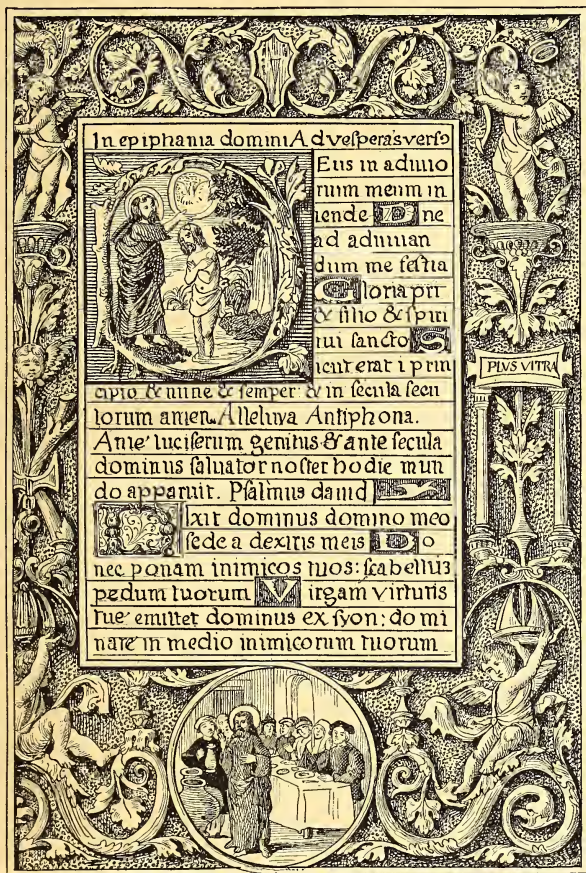 In epiphania domini Ad vesperas versꝰ
Eus in adiuto
rium meum in
tende D ne
ad adiuuan
dum me festia
Gloria pri
& filio & spiri
tui sancto S
icut erat i prin
cipio & nunc & semper & in secula secu
lorum amen. Alleluya Antiphona.
Ante luciferum genitus & ante secula
dominus saluator noster hodie mun
do apparuit. Psalmus dauid
D ixit dominus domino meo
sede a dextris meis D o
nec ponam inimicos tuos: scabellus
pedum tuorum V irgam virtutis
tue emittet dominus ex syon: do mi
nare in medio inimicorum tuorum
PLVS VLTRA